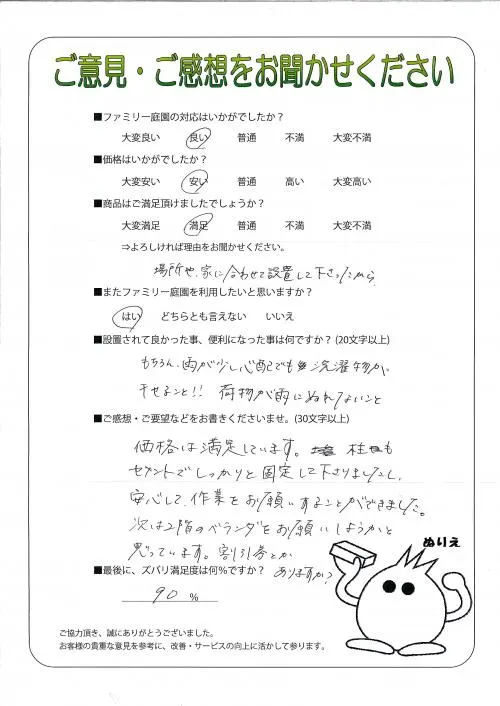 ご意見・ご感想をお聞かせください
■ファミリー庭園の対応はいかがでしたか？
大変良い 良い 普通 不満 大変不満
■価格はいかがでしたか？
大変安い 安い 普通 高い 大変高い
■商品はご満足頂けましたでしょうか？
大変満足 満足 普通 不満 大変不満
⇒よろしければ理由をお聞かせください。
場所や、家に合わせて設置して下さったから
■またファミリー庭園を利用したいと思いますか？
はい どちらとも言えない いいえ
■設置されて良かった事、便利になった事は何ですか？(20文字以上)
もちろん、雨が少し心配でも洗濯物が
干せること!! 荷物が雨にぬれないこと
■ご感想・ご要望などをお書きくださいませ。(30文字以上)
価格は満足しています。柱も
セメントでしっかりと固定して下さりましたし、
安心して、作業をお願いすることができました。
次は2階のベランダをお願いしようかと
思っています。割引券とか
ありますか？
■最後に、ズバリ満足度は何％ですか？
90 %
ぬりえ
ご協力頂き、誠にありがとうございました。
お客様の貴重な意見を参考に、改善・サービスの向上に活かして参ります。